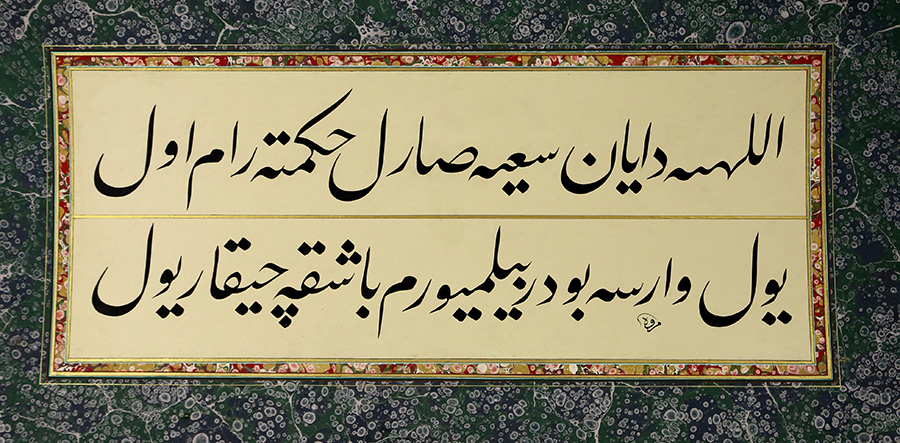 اللهه دایان سعیه صاریل حکمته رام اول
یول وارسه بودر بیلمیورم باشقه چیقار یول
مروه